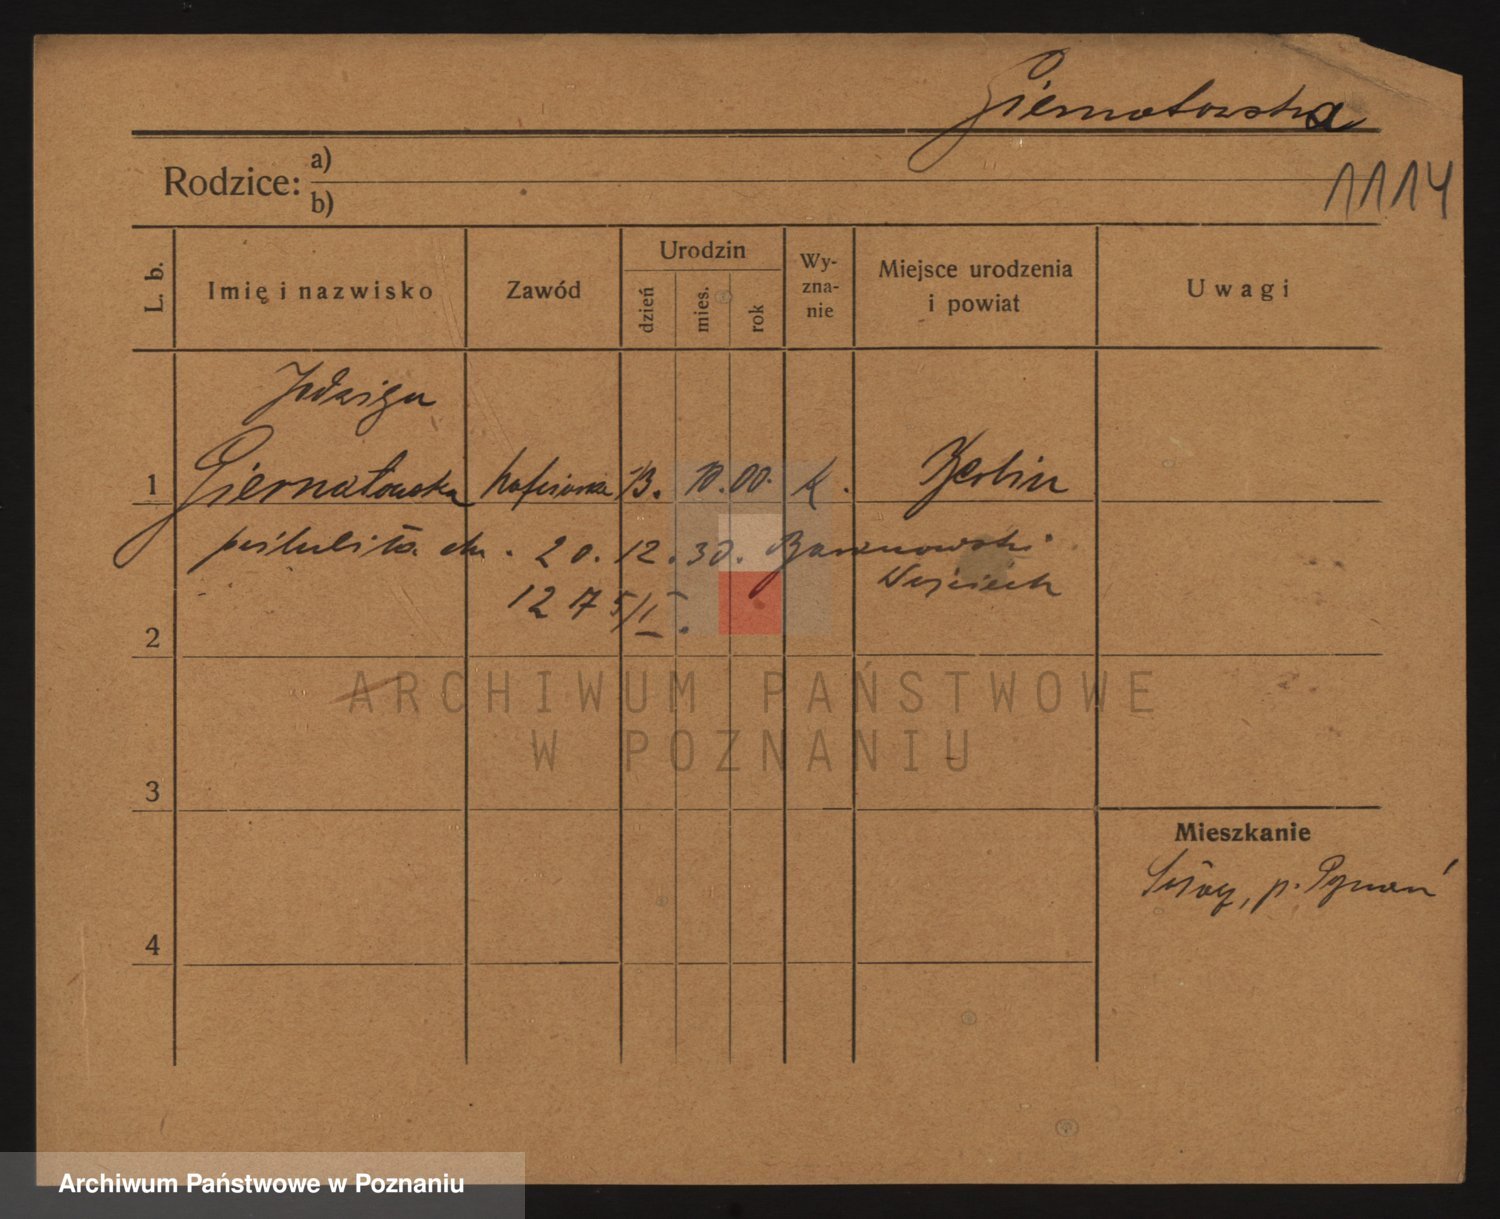 Giernatowska
1114
Rodzice: a)
b)
L. b.
Imię i nazwisko
Zawód
Urodzin
dzień
mies.
rok
Wy-
zna-
nie
Miejsce urodzenia
i powiat
Uwagi
Jadwiga
1 Giernatowska hafciarka 13. 10. 00. k. Berlin
poślubiła dn. 20. 12. 30. Baranowski
Wojciech
1275/I.
2
3
Mieszkanie
p. Poznań
4
ARCHIWUM PAŃSTWOWE
W POZNANIU
Archiwum Państwowe w Poznaniu